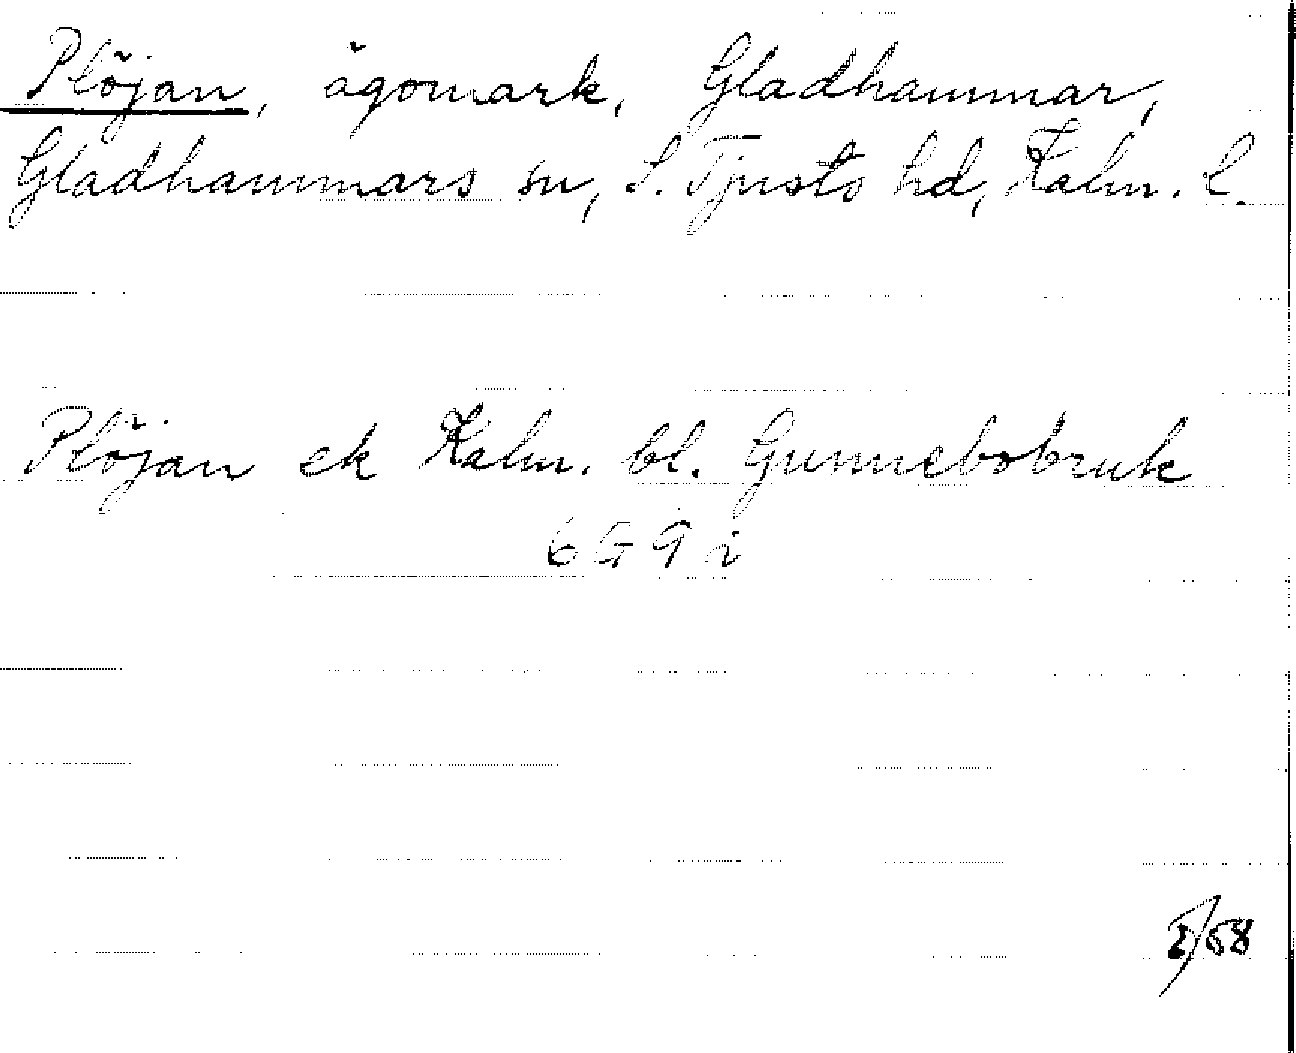 Plöjan, ägomark, Gladhammar,
Gladhammars sn, S. Tjusts hd, Kalm. l.
Plöjan ek Kalm. bl. Gunnebobruk
6G 9 i
5/68